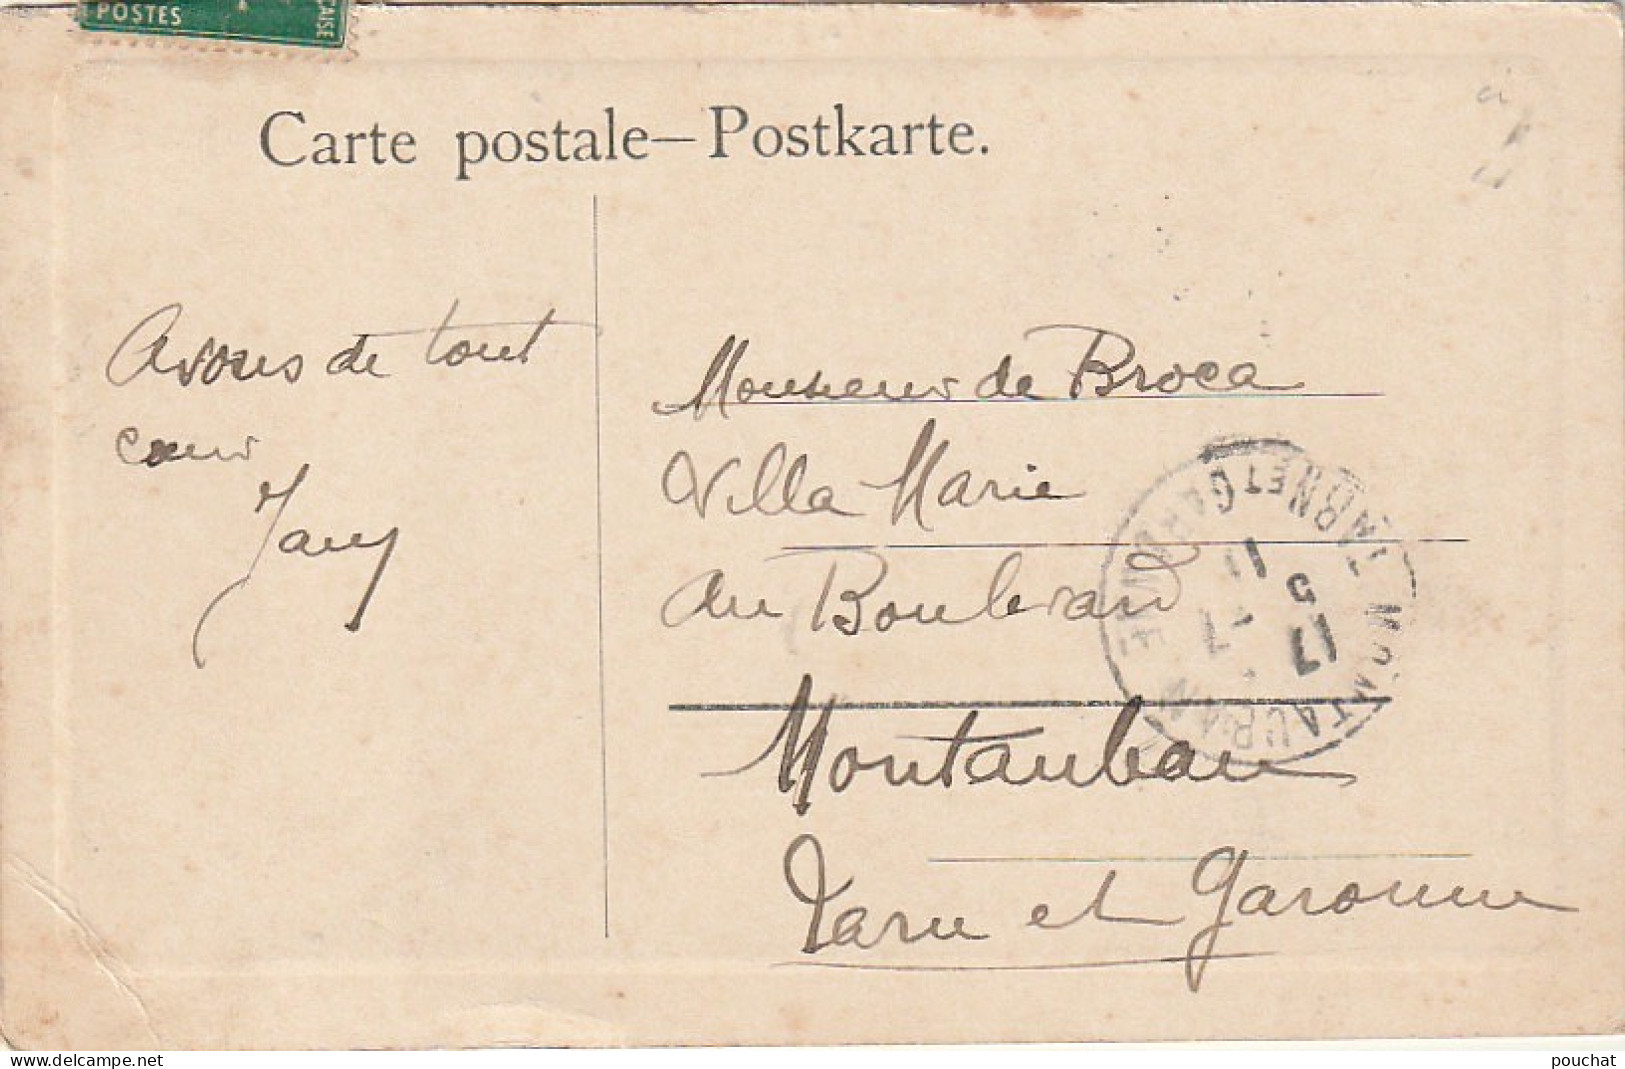 POSTES
Carte postale—Postkarte.
A vous de tout
cœur
Jany
Monsieur de Broca
Villa Marie
au Boulevard
Montauban
Tarn et Garonne
MONTAUBAN
TARN ET GARONNE
11
17
5
delcampe.net
pouchat